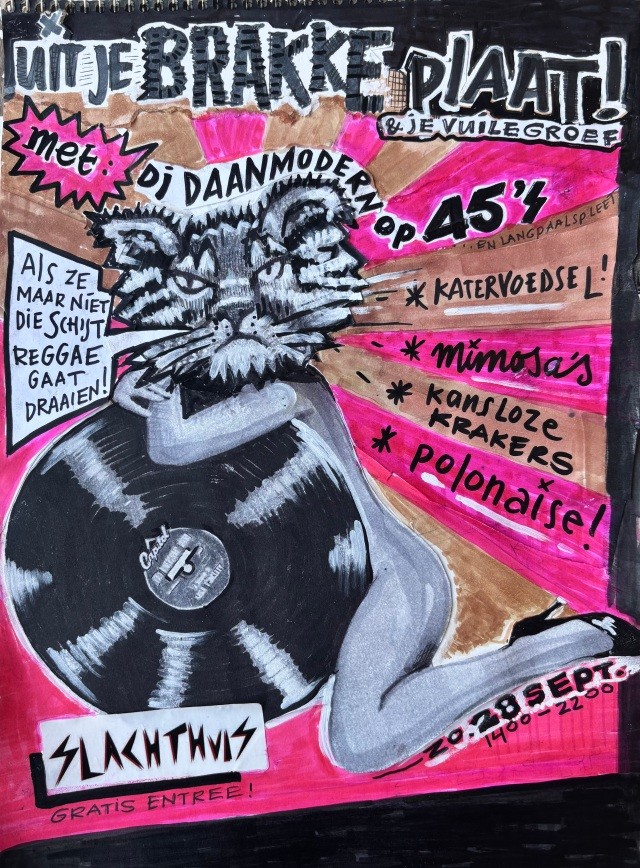 UIT JE BRAKKE PLAAT!
& JE VUILE GROEF
met:
DJ DAANMODERN OP 45's
EN LANGPAALSPLEET
ALS ZE
MAAR NIET
DIE SCHIJT
REGGAE
GAAT
DRAAIEN!
* KATERVOEDSEL!
* mimosa's
* kansloze
KRAKERS
* polonaise!
Capitol
ZO. 28 SEPT.
1400 - 2200
SLACHTHUIS
GRATIS ENTREE!